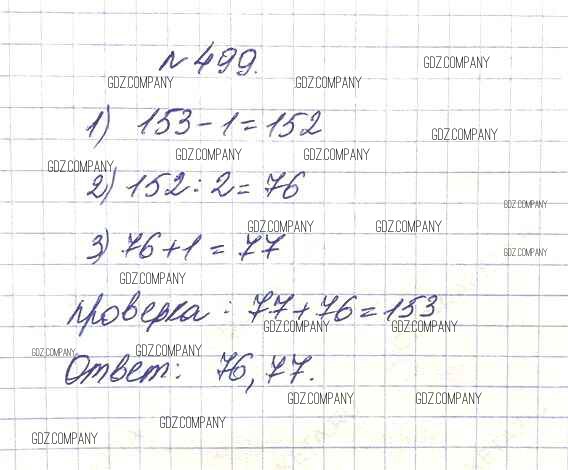 № 499.
GDZ.COMPANY
GDZ.COMPANY GDZ.COMPANY
1) 153 - 1 = 152
GDZ.COMPANY
GDZ.COMPANY GDZ.COMPANY GDZ.COMPANY
2) 152 : 2 = 76
GDZ.COMPANY
GDZ.COMPANY GDZ.COMPANY
3) 76 + 1 = 77
GDZ.COMPANY
GDZ.COMPANY
проверка : 77 + 76 = 153
GDZ.COMPANY GDZ.COMPANY
GDZ.COMPANY GDZ.COMPANY
Ответ: 76, 77.
GDZ.COMPANY GDZ.COMPANY
GDZ.COMPANY
GDZ.COMPANY